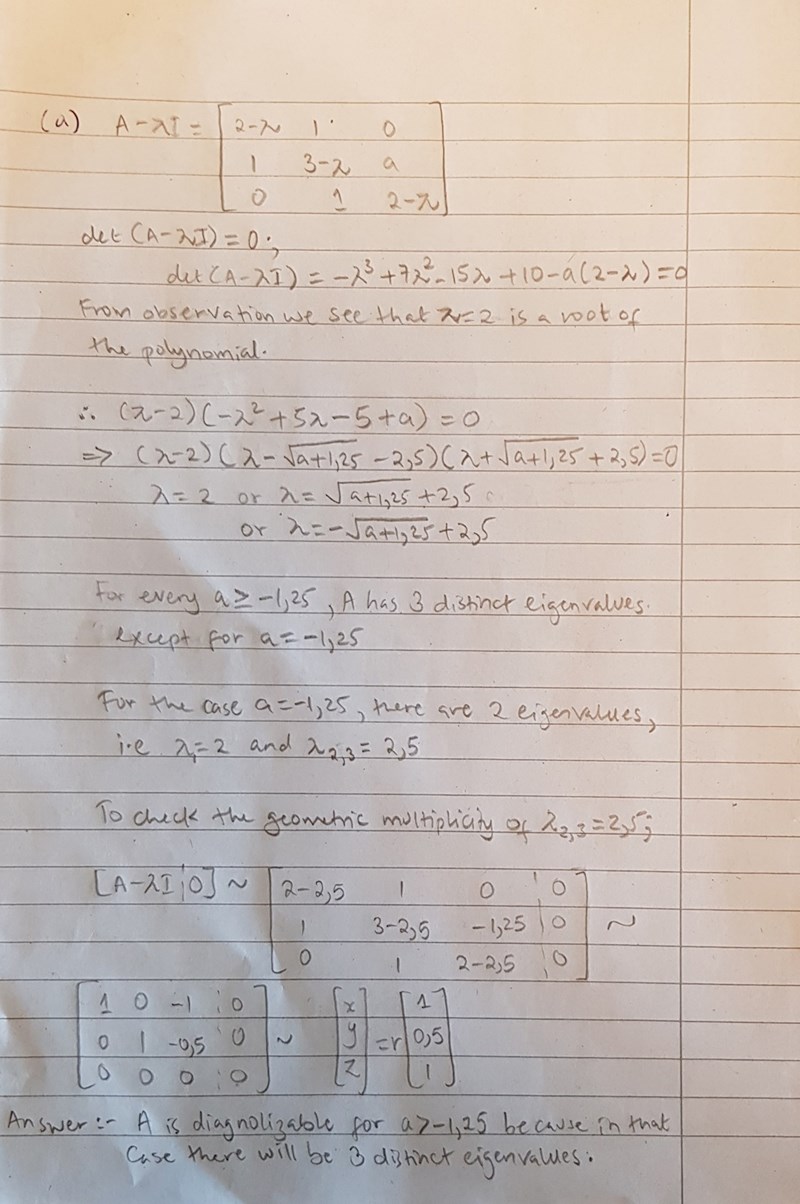 (a) A-λI = [2-λ 1 0
1 3-λ a
0 1 2-λ]
det (A-λI) = 0;
det (A-λI) = -λ³+7λ²-15λ+10-a(2-λ)=0
From observation we see that λ=2 is a root of
the polynomial.
∴ (λ-2)(-λ²+5λ-5+a) = 0
⇒ (λ-2)(λ-√a+1,25 -2,5)(λ+√a+1,25 +2,5)=0
λ=2 or λ=√a+1,25 +2,5
or λ=-√a+1,25 +2,5
For every a≥-1,25, A has 3 distinct eigenvalues.
except for a=-1,25
For the case a=-1,25, there are 2 eigenvalues,
i.e λ₁=2 and λ₂,₃=2,5
To check the geometric multiplicity of λ₂,₃=2,5;
[A-λI¦0] ~ [2-2,5 1 0 ¦ 0
1 3-2,5 -1,25 ¦ 0 ~
0 1 2-2,5 ¦ 0]
[1 0 -1 ¦ 0] [x] [1]
[0 1 -0,5 ¦ 0] ~ [y] =r [0,5]
[0 0 0 ¦ 0] [z] [1]
Answer :- A is diagnolizable for a>-1,25 because in that
Case there will be 3 distinct eigenvalues.